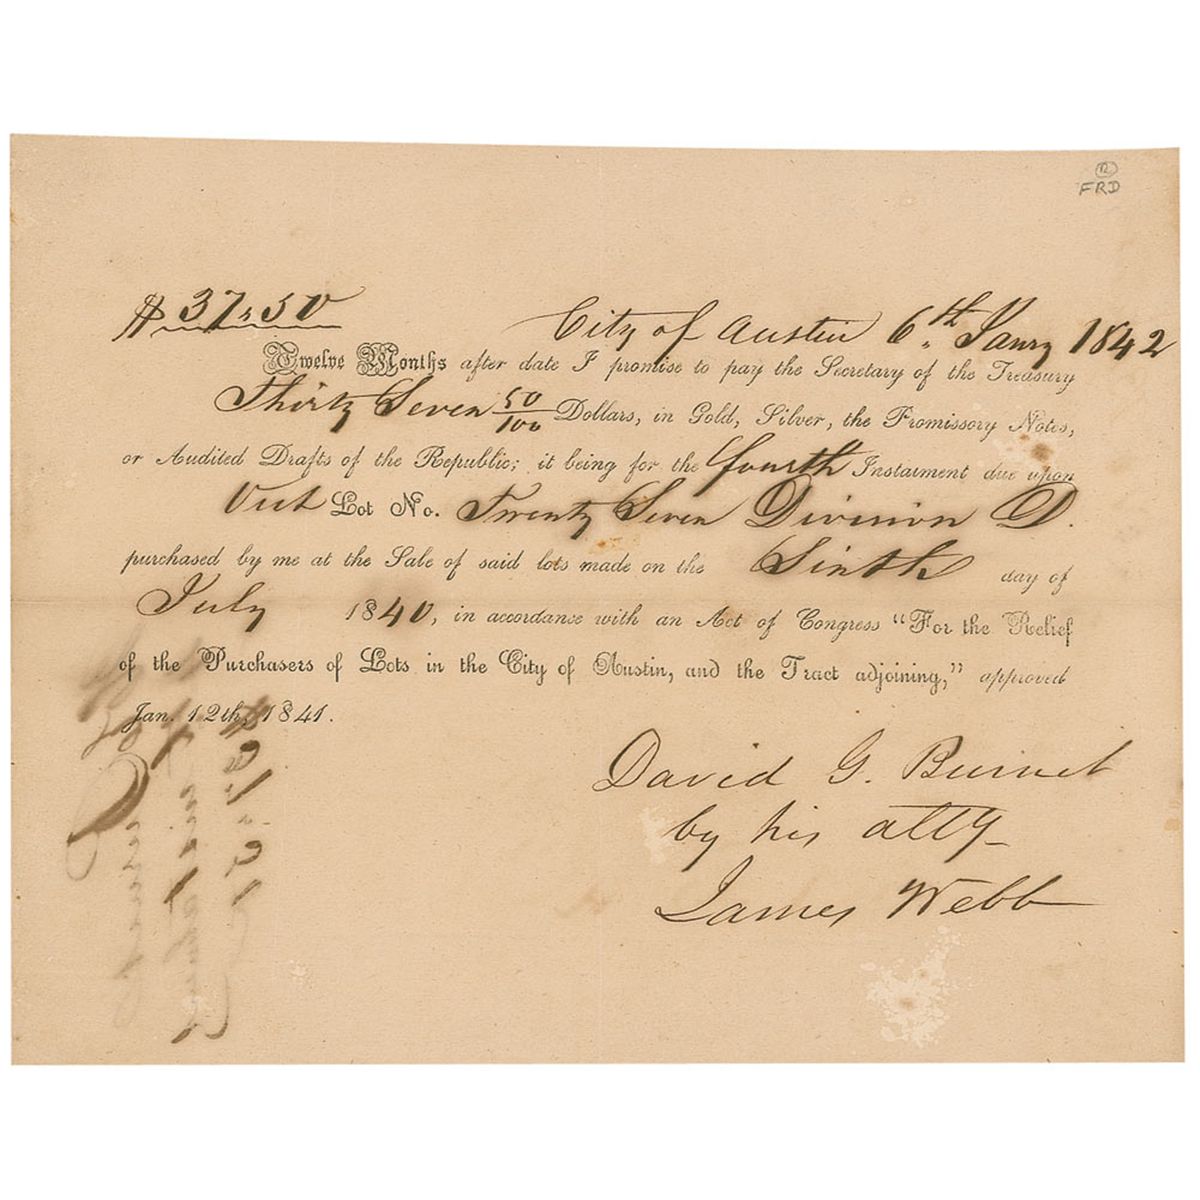 FRD
$37.50
City of Austin 6th Jany 1842
Twelve Months after date I promise to pay the Secretary of the Treasury
Thirty Seven 50/100 Dollars, in Gold, Silver, the Promissory Notes,
or Audited Drafts of the Republic; it being for the fourth Instalment due upon
Lot No. Twenty Seven Division D.
purchased by me at the Sale of said lots made on the Sixth day of
July 1840, in accordance with an Act of Congress "For the Relief
of the Purchasers of Lots in the City of Austin, and the Tract adjoining," approved
Jan. 12th, 1841.
David G. Burnet
by his atty
James Webb